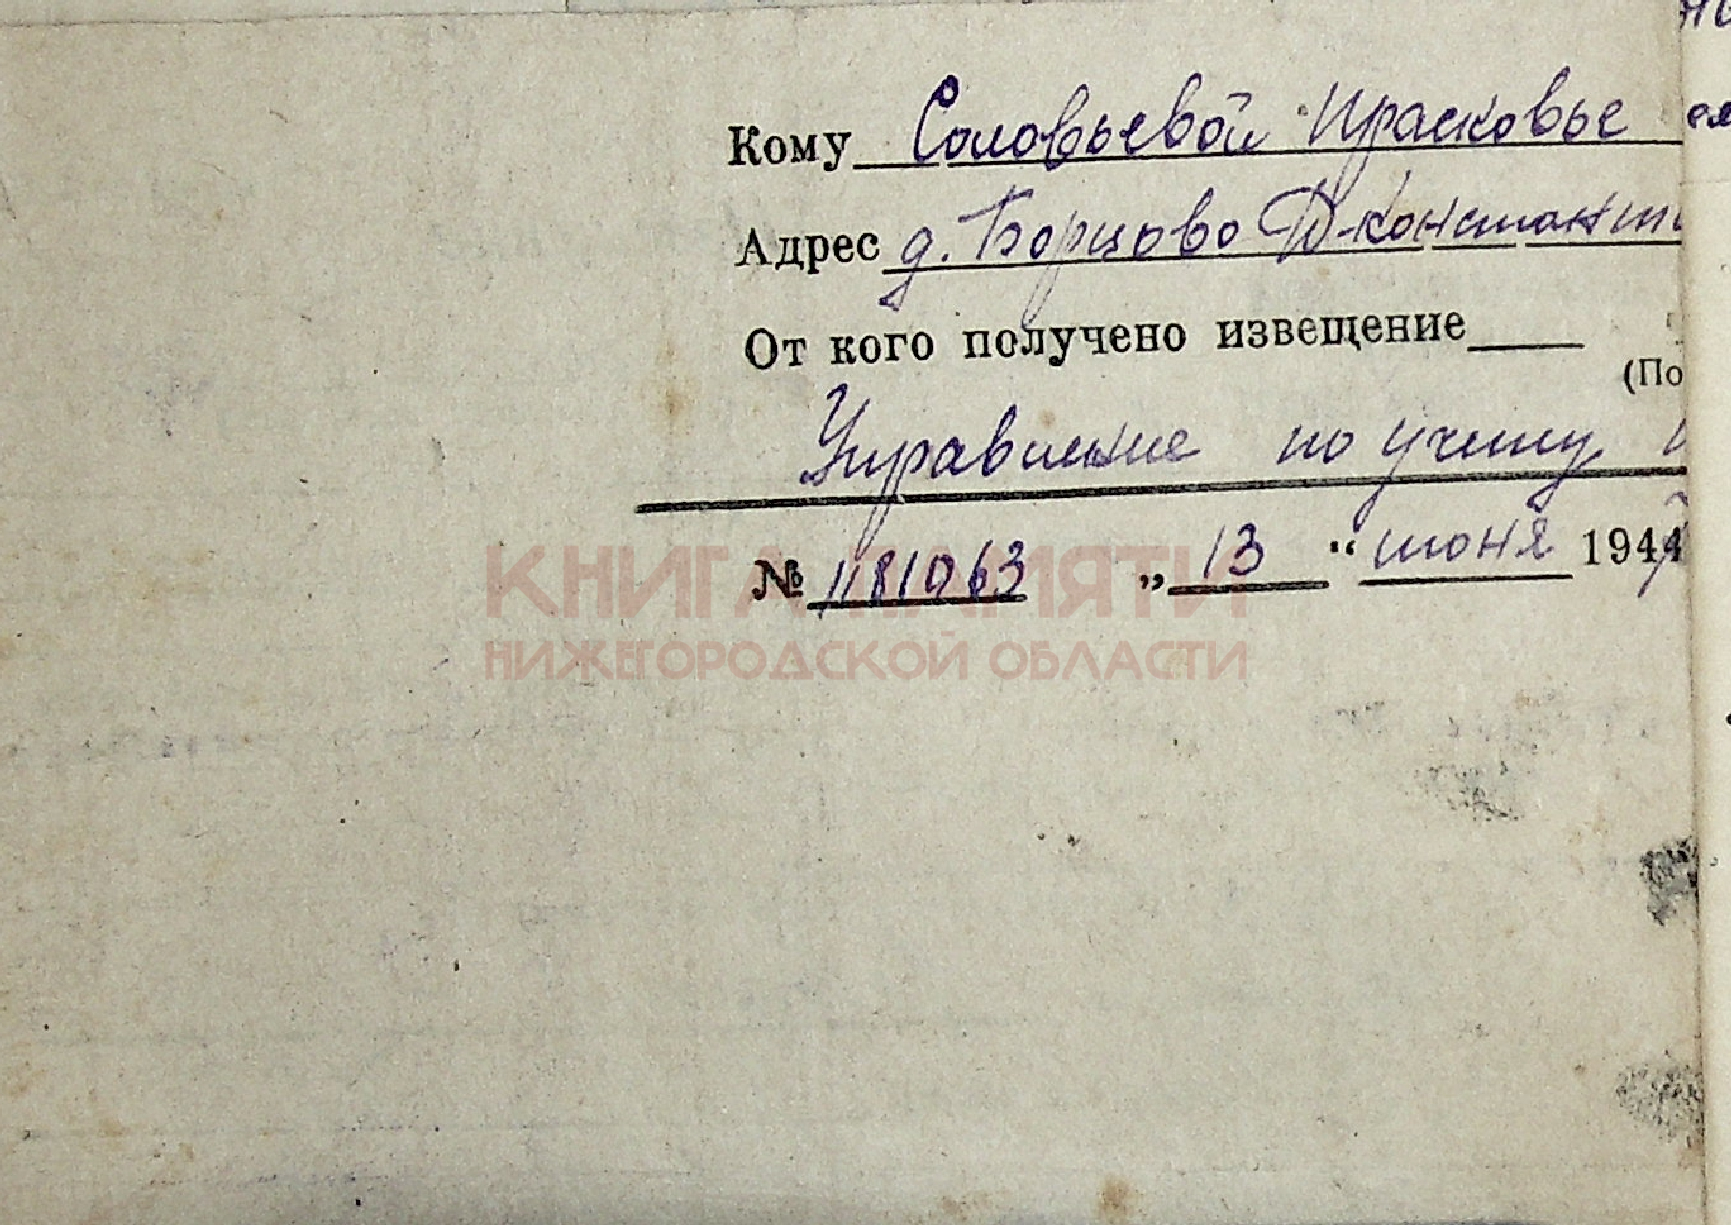 Кому Соловьевой Прасковье
Адрес д. Борцово Д-Константи
От кого получено извещение
(По
Управление по учету и
№ 1181063 „ 13 “ июня 194
КНИГА ПАМЯТИ
НИЖЕГОРОДСКОЙ ОБЛАСТИ